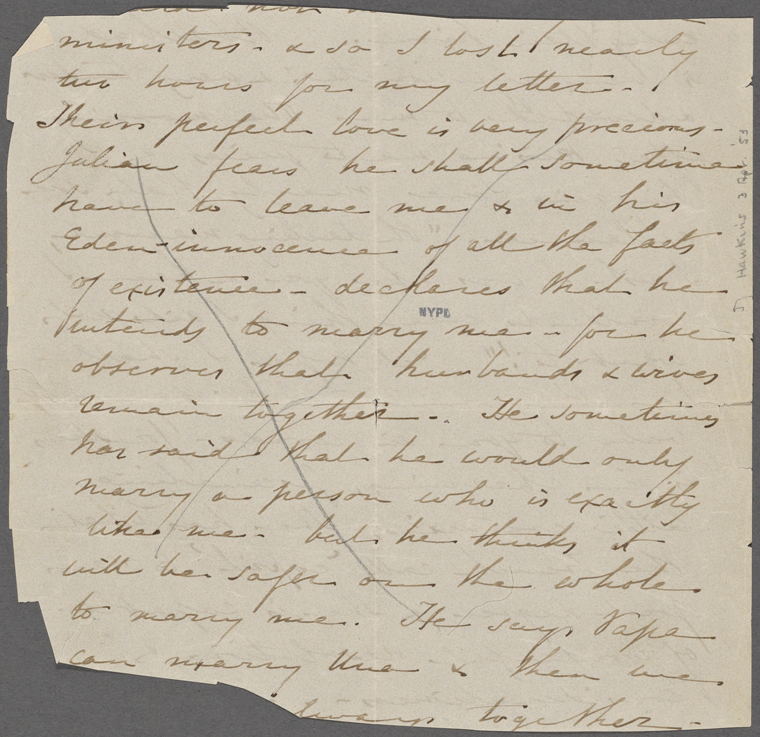 ministers - & so I lost nearly
two hours for my letter -
Their perfect love is very precious -
Julian fears he shall sometime
have to leave me & in his
Eden-innocence of all the facts
of existence - declares that he
intends to marry me - for he
observes that husbands & wives
remain together -. He sometimes
has said that he would only
marry a person who is exactly
like me - but he thinks it
will be safer on the whole
to marry me. He says Papa
can marry Una & then we
always together -
NYPL
Hawkins 3 Apr. '53